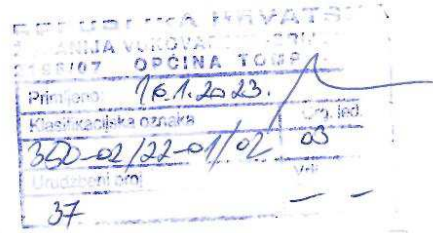 REPUBLIKA HRVATSKA
OPĆINA
Primljeno: 16.1.2023.
Klasifikacijska oznaka Org. jed.
350-02/22-01/02 03
Urudžbeni broj
37 — —